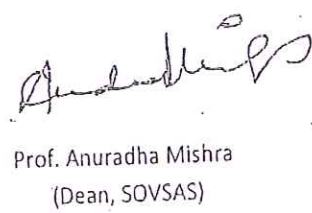 Prof. Anuradha Mishra
(Dean, SOVSAS)